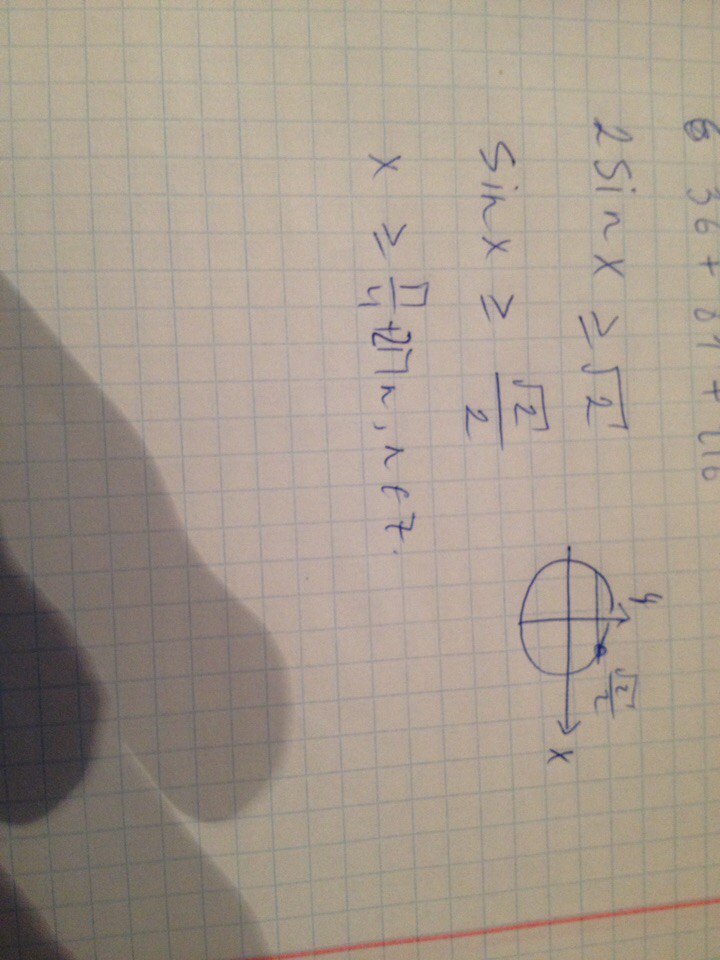 6 36 + 81 + 216
2 Sin x ≥ √2
Sin x ≥ √2/2
x ≥ π/4 + 2πn, n ∈ Z.
y
√2/2
x